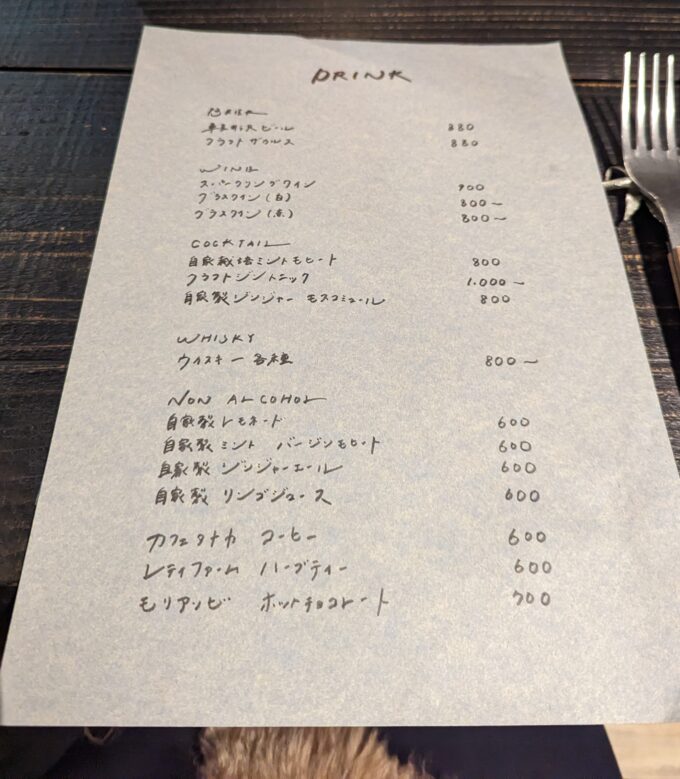 DRINK
BEER
軽井沢ビール 880
クラフトザウルス 880
WINE
スパークリングワイン 900
グラスワイン (白) 800～
グラスワイン (赤) 800～
COCKTAIL
自家栽培ミントモヒート 800
クラフトジントニック 1.000～
自家製ジンジャー モスコミュール 800
WHISKY
ウイスキー各種 800～
NON ALCOHOL
自家製レモネード 600
自家製ミント バージンモヒート 600
自家製 ジンジャーエール 600
自家製 リンゴジュース 600
カフェタナカ コーヒー 600
レティファーム ハーブティー 600
モリアソビ ホットチョコレート 700